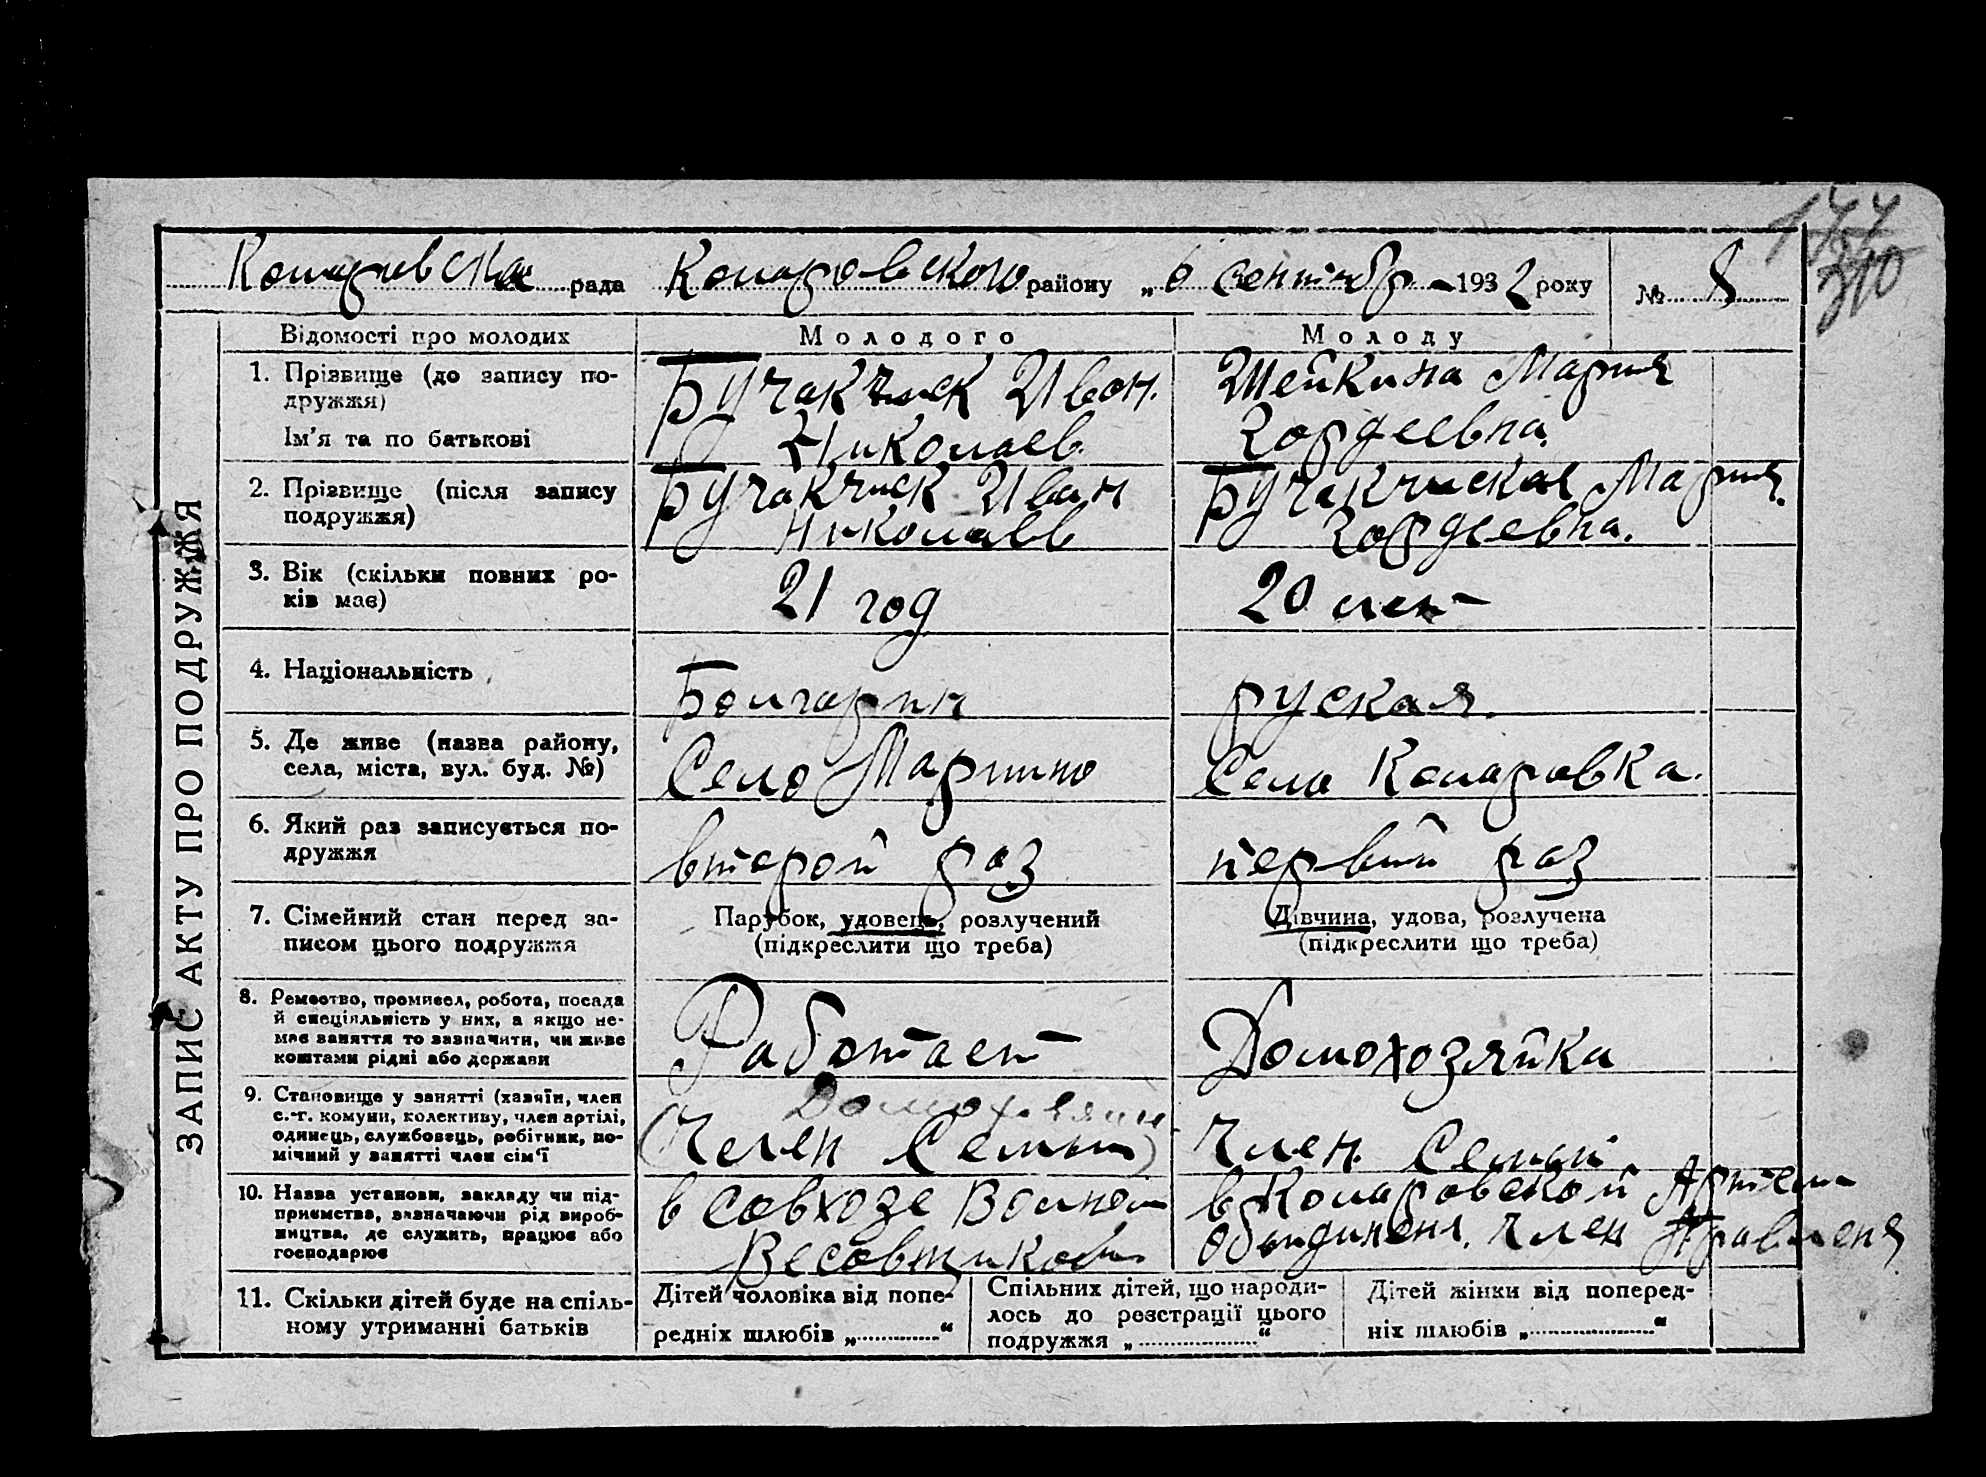 177
310
Комаровска рада Комаровского району „6 сентябр 1932 року № 8
ЗАПИС АКТУ ПРО ПОДРУЖЖЯ
Відомості про молодих
Молодого
Молоду
1. Прізвище (до запису по-
дружжя)
Ім'я та по батькові
Бучакчиск Иван.
Николаев
Шейкина Мария
Гордеевна.
2. Прізвище (після запису
подружжя)
Бучакчиск Иван
Николаев
Бучакчиская Мария
Гордеевна.
3. Вік (скільки повних ро-
ків має)
21 год
20 лет
4. Національність
Болгарин
руская.
5. Де живе (назва району,
села, міста, вул. буд. №)
Село Марьино
Село Комаровка.
6. Який раз записується по-
дружжя
второй раз
первий раз
7. Сімейний стан перед за-
писом цього подружжя
Парубок, удовець, розлучений
(підкреслити що треба)
Дівчина, удова, розлучена
(підкреслити що треба)
8. Ремество, промисел, робота, посада
й спеціяльність у них, а якщо не-
має заняття то зазначити, чи живе
коштами рідні або держави
Работает
Домохозяйка
9. Становище у занятті (хазяїн, член
с.-г. комуни, колективу, член артілі,
одинець, службовець, робітник, по-
мічний у занятті член сім'ї
(Член Семьи)
Член. Семьи
10. Назва установи, закладу чи під-
приємства, зазначаючи рід вироб-
ництва, де служить, працює або
господарює
в Совхозе
Весовщиком
в Комаровской Артели
Член Правленя
11. Скільки дітей буде на спіль-
ному утриманні батьків
Дітей чоловіка від попе-
редніх шлюбів „.............“
Спільних дітей, що народи-
лось до реєстрації цього
подружжя „...................“
Дітей жінки від поперед-
ніх шлюбів „....................“